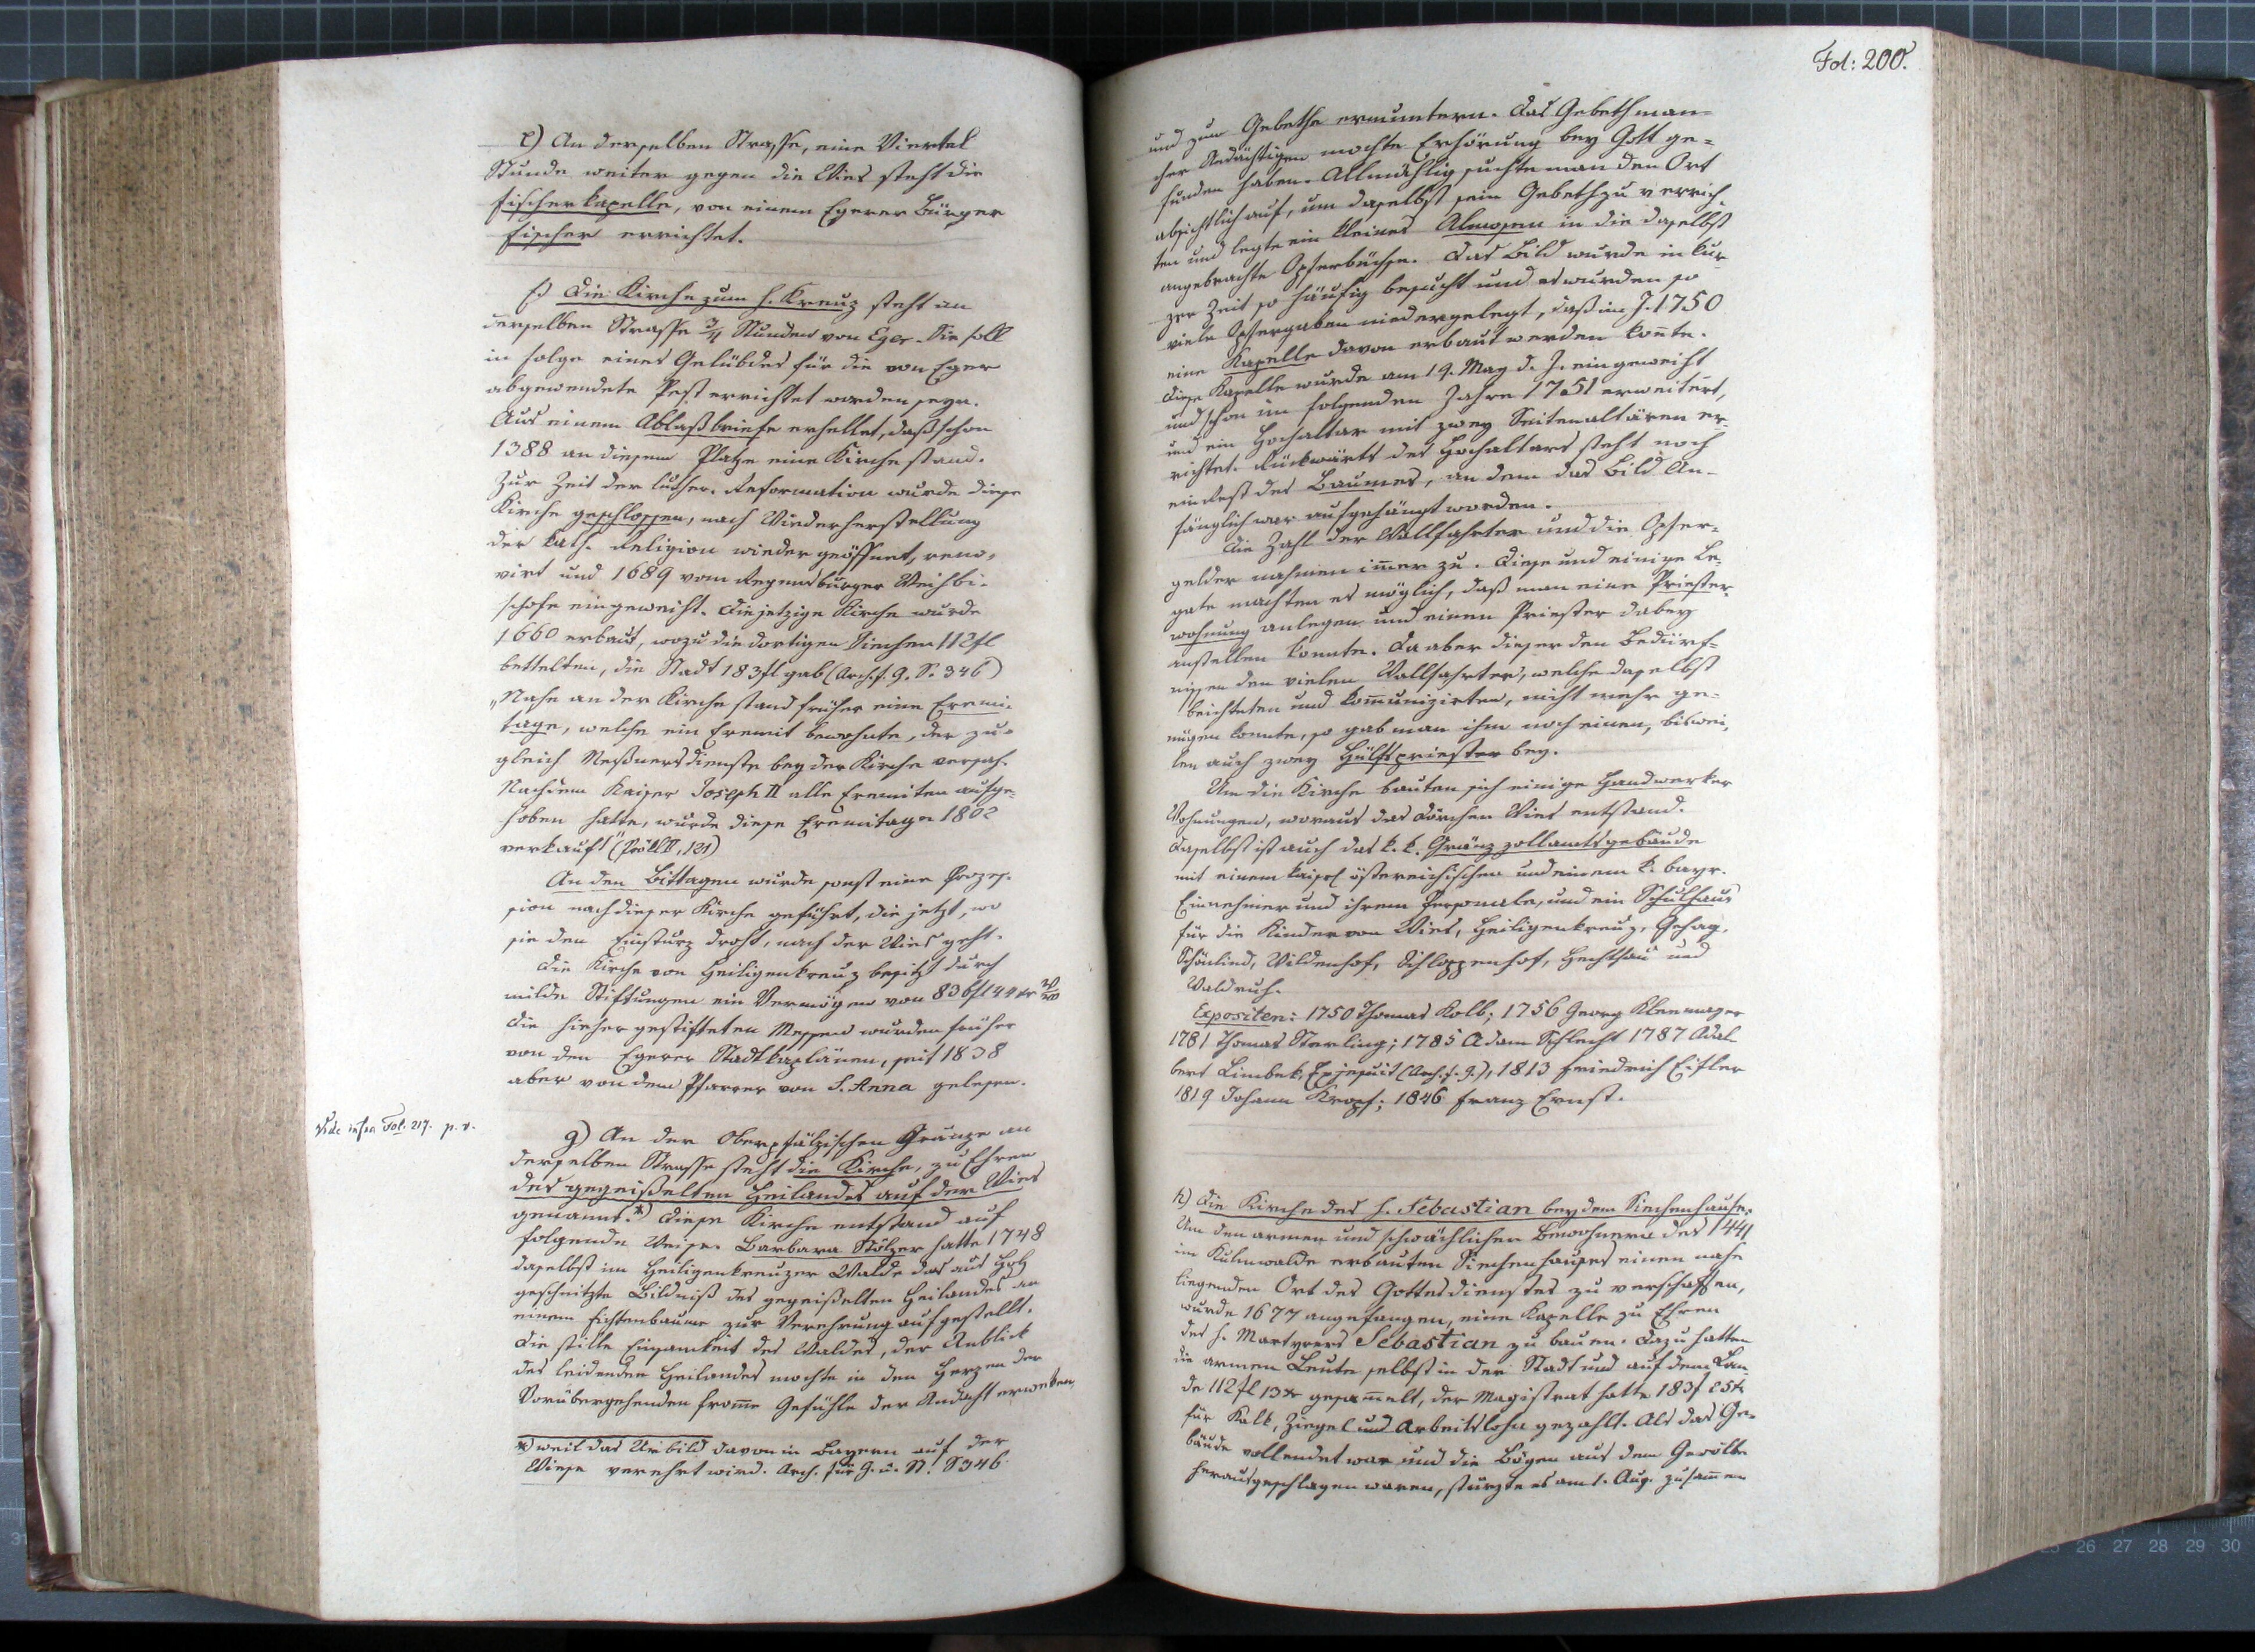 e) An derselben Strasse, eine Viertel
Stunde weiter gegen die Wies steht die
Fischerkapelle, von einem Egerer Bürger
Fischer errichtet.
f) Die Kirche zum h. Kreuz steht an
derselben Strasse 3/4 Stunden von Eger. Sie soll
in folge eines Gelübdes für die von Eger
abgewendete Pest errichtet worden seyn.
Aus einem Ablaßbriefe erhellet, daß schon
1388 an diesem Platze eine Kirche stand.
Zur Zeit der luther. Reformation wurde diese
Kirche geschlossen, nach Wiederherstellung
der kath. Religion wieder geöffnet, reno-
virt und 1689 vom Regensburger Weihbi-
schofe eingeweiht. Die jetzige Kirche wurde
1660 erbaut, wozu die dortigen Siechen 112 fl
bettelten, die Stadt 183 fl gab (Arch. f. G. S. 346)
„Nahe an der Kirche stand früher eine Eremi-
tage, welche ein Eremit bewohnte, der zu-
gleich Meßnersdienste bey der Kirche versah.
Nachdem Kaiser Joseph II alle Eremiten aufge-
hoben hatte, wurde diese Eremitage 1802
verkauft" (Pröll II, 121)
An den Bittagen wurde sonst eine Prozes-
sion nach dieser Kirche geführt, die jetzt, wo
sie den Einsturz droht, nach der Wies geht.
Die Kirche von Heiligenkreuz besitzt durch
milde Stiftungen ein Vermögen von 836 fl 44 kr
Die hieher gestifteten Messen wurden früher
von den Egerer Stadtkaplänen, seit 1838
aber von dem Pfarrer von S. Anna gelesen.
Vide infra Fol. 217. p. v.
g) An der Oberpfälzischen Gränze an
derselben Strasse steht die Kirche, zu Ehren
des gegeißelten Heilandes auf der Wies
genannt.*) Diese Kirche entstand auf
folgende Weise. Barbara Stölzer hatte 1748
daselbst im Heiligenkreuzer Walde das aus Holz
geschnitzte Bildniß des gegeißelten Heilandes an
einem Fichtenbaume zur Verehrung aufgestellt.
Die stille Einsamkeit des Waldes, der Anblick
des leidenden Heilandes mochte in den Herzen der
Vorübergehenden from̄e Gefühle der Andacht erweken,
*) weil das Urbild davon in Bayern auf der
Wiese verehrt wird. Arch. für G. u. St. S 346
Fol: 200.
und zum Gebethe ermuntern. Das Gebeth man-
cher Andächtigen mochte Erhörung bey Gott ge-
funden haben. Allmählig suchte man den Ort
absichtlich auf, um daselbst sein Gebeth zu verrich-
ten und legte ein kleines Almosen in die daselbst
angebrachte Opferbüchse. Das Bild wurde in kur-
zer Zeit so häufig besucht und es wurden so
viele Opfergaben niedergelegt, daß im J. 1750
eine Kapelle davon erbaut werden kon̄te.
Diese Kapelle wurde am 19. May d. J. eingeweiht
und schon im folgenden Jahre 1751 erweitert,
und ein Hochaltar mit zwey Seitenaltären er-
richtet. Rückwärts des Hochaltars steht noch
ein Rest des Baumes, an dem das Bild An-
fänglich war aufgehängt worden.
Die Zahl der Wallfahrter und die Opfer-
gelder nahmen im̄er zu. Diese und einige Le-
gate machten es möglich, daß man eine Priester-
wohnung anlegen und einen Priester dabey
anstellen konnte. Da aber dieser den Bedürf-
nissen den vielen Wallfahrter, welche daselbst
beichteten und kom̄unizirten, nicht mehr ge-
nügen konnte, so gab man ihm noch einen, biswei-
len auch zwey Hülfspriester bey.
Um die Kirche bauten sich einige Handwerker
Wohnungen, woraus das Dörchen Wies entstand.
Daselbst ist auch das k. k. Gränzzollamtsgebäude
mit einem kaisel östereichischen und einem k. bayr.
Einnehmer und ihrem Personale, und ein Schulhaus
für die Kinder von Wies, Heiligenkreuz, Gehag,
Schönlind, Wildenhof, Schloppenhof, Hechthau und
Waldruh.
Expositen: 1750 Thomas Kolb; 1756 Georg Kleemayer
1781 Thomas Sterling; 1785 Adam Schlecht 1787 Adal-
bert Limbek, Exjesuit (Arch. f. G.), 1813 Friedrich Eisler
1819 Johann Kropf; 1846 Franz Ernst.
h) Die Kirche des h. Sebastian bey dem Siechenhause.
Um den armen und schwächlichen Bewohnern des 1441
im Kulmwalde erbauten Siechenhauses einen nahe
liegenden Ort des Gottesdienstes zu verschaffen,
wurde 1677 angefangen, eine Kapelle zu Ehren
des h. Martyrers Sebastian zu bauen. Dazu hatten
die armen Leute selbst in der Stadt und auf dem Lan-
de 112 fl 13 kr gesam̄elt, der Magistrat hatte 183 f 25 kr
für Kalk, Ziegel und Arbeitslohn gezahlt. Als das Ge-
bäude vollendet war und die Bögen aus dem Gewölbe
herausgeschlagen waren, stürzte es am 1. Aug. zusam̄en